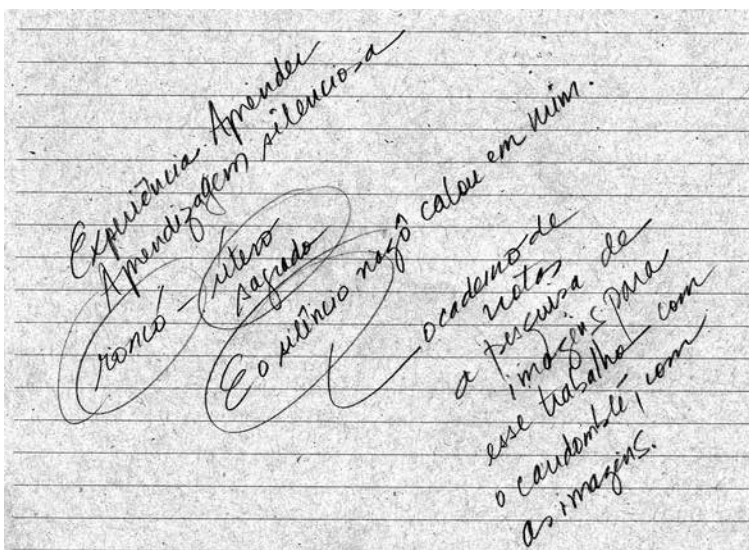 Experiência. Aprender
Aprendizagem silenciosa
roncó - útero
sagrado
E o silêncio nagô calou em mim.
o caderno de
notas
a pesquisa de
imagens para
esse trabalho com
o candomblé, com
as imagens.